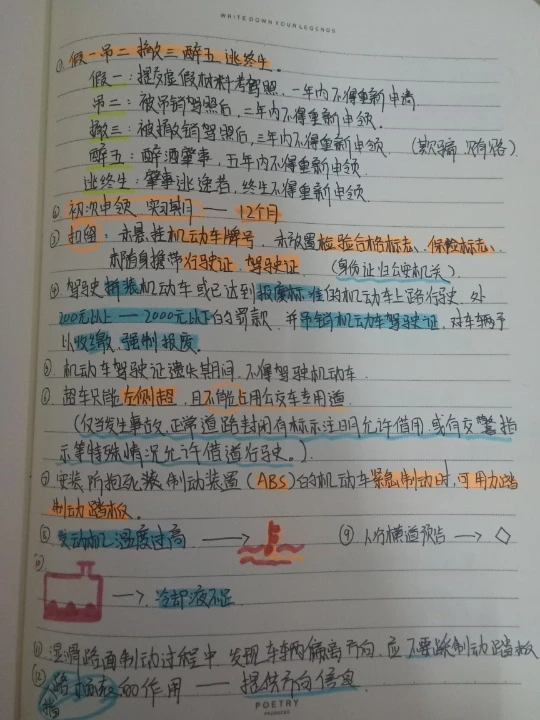 WRITE DOWN YOUR LEGENDS
① 假一吊二撤三醉五逃终生。
假一：提交虚假材料考驾照，一年内不得重新申请
吊二：被吊销驾照后，二年内不得重新申领。
撤三：被撤销驾照后，三年内不得重新申领.
醉五：醉酒肇事，五年内不得重新申领.
逃终生：肇事逃逸者，终生不得重新申领.
② 初次申领、实习期 —— 12个月
③ 扣留：未悬挂机动车牌号、未放置检验合格标志、保险标志、
未随身携带行驶证、驾驶证 （身份证归公安机关）
④ 驾驶拼装机动车或已达到报废标准的机动车上路行驶，处
200元以上——2000元以下的罚款，并吊销机动车驾驶证，对车辆予
以收缴，强制报废。
⑤ 机动车驾驶证遗失期间，不得驾驶机动车.
⑥ 超车只能左侧超，且不能占用公交车专用道.
（仅当发生事故，正常道路封闭有标示注明允许借用，或有交警指
示等特殊情况允许借道行驶。）
⑦ 安装防抱死装制动装置（ABS）的机动车紧急制动时，可用力踏
制动踏板。
⑧ 发动机温度过高 ⑨ 人行横道预告 → ◇
⑩
→ 冷却液不足
⑪ 湿滑路面制动过程中，发现车辆偏离方向，应不要踩制动踏板
⑫ 路 的作用 —— 提供方向信息
POETRY